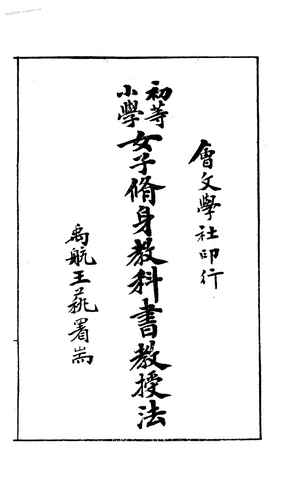 會文學社印行
初等小學女子脩身教科書教授法
禹航王蕘署耑